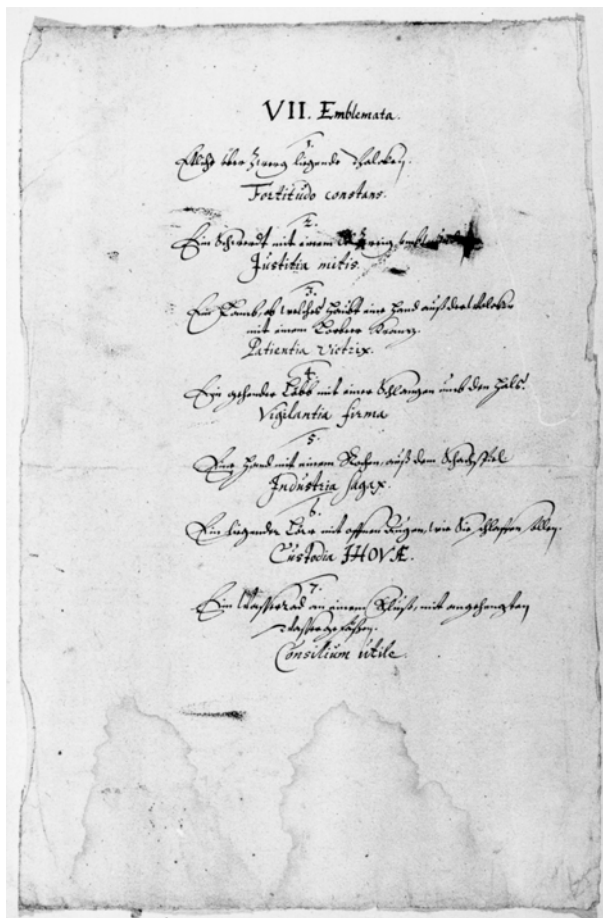 VII. Emblemata.
1.
Etliche über Zwerg ligende Balcken.
Fortitudo constans.
2.
Ein Schwerdt mit einem
Justitia mitis.
3.
Ein Lamb, ob welches Haubt eine Hand auß der Wolcken
mit einem Lorbeer Krantz.
Patientia Victrix.
4.
Ein gehender Löbb mit einer Schlangen umb den Hals.
Vigilantia firma
5.
Eine Hand mit einem Rochen, auß dem Schachspiel
Industria sagax.
6.
Ein ligender Löw mit offnen Augen, wie Sie schlaffen sollen.
Custodia IHOVÆ.
7.
Ein Wasserrad an einem Fluß, mit angehengten
Wassergefäßen.
Consilium utile.